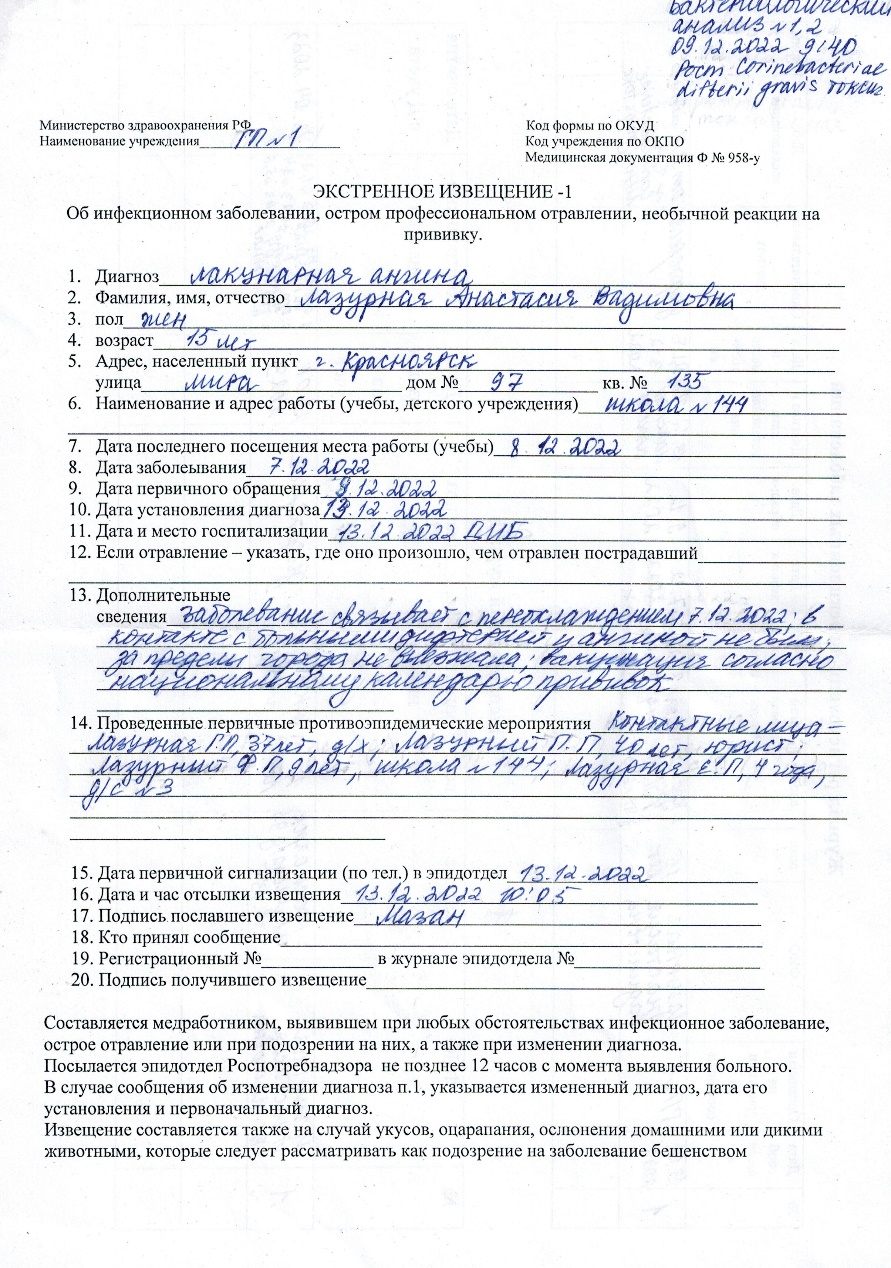 Бактериологический
анализ №1,2
09.12.2022 9:40
Рост Corinebacteriae
difterii gravis токсиг.
Министерство здравоохранения РФ
Наименование учреждения ГП №1
Код формы по ОКУД
Код учреждения по ОКПО
Медицинская документация Ф № 958-у
ЭКСТРЕННОЕ ИЗВЕЩЕНИЕ -1
Об инфекционном заболевании, остром профессиональном отравлении, необычной реакции на
прививку.
1. Диагноз лакунарная ангина
2. Фамилия, имя, отчество Лазурная Анастасия Вадимовна
3. пол жен
4. возраст 15 лет
5. Адрес, населенный пункт г. Красноярск
улица мира дом № 97 кв. № 135
6. Наименование и адрес работы (учебы, детского учреждения) школа №144
7. Дата последнего посещения места работы (учебы) 8.12.2022
8. Дата заболеывания 7.12.2022
9. Дата первичного обращения 9.12.2022
10. Дата установления диагноза 13.12.2022
11. Дата и место госпитализации 13.12.2022 ДИБ
12. Если отравление – указать, где оно произошло, чем отравлен пострадавший
13. Дополнительные
сведения Заболевание связывает с переохлаждением 7.12.2022; в
контакте с больными дифтерией и ангиной не был;
за пределы города не выезжала; вакцинация согласно
национальному календарю прививок
14. Проведенные первичные противоэпидемические мероприятия Контактные лица –
Лазурная Г.П, 37лет, д/х; Лазурный П.П, 40 лет, юрист;
Лазурный Ф.П, 9 лет, школа №144; Лазурная Е.П, 4 года,
д/с №3
15. Дата первичной сигнализации (по тел.) в эпидотдел 13.12.2022
16. Дата и час отсылки извещения 13.12.2022 10:05
17. Подпись пославшего извещение Мазан
18. Кто принял сообщение
19. Регистрационный № в журнале эпидотдела №
20. Подпись получившего извещение
Составляется медработником, выявившем при любых обстоятельствах инфекционное заболевание,
острое отравление или при подозрении на них, а также при изменении диагноза.
Посылается эпидотдел Роспотребнадзора не позднее 12 часов с момента выявления больного.
В случае сообщения об изменении диагноза п.1, указывается измененный диагноз, дата его
установления и первоначальный диагноз.
Извещение составляется также на случай укусов, оцарапания, ослюнения домашними или дикими
животными, которые следует рассматривать как подозрение на заболевание бешенством